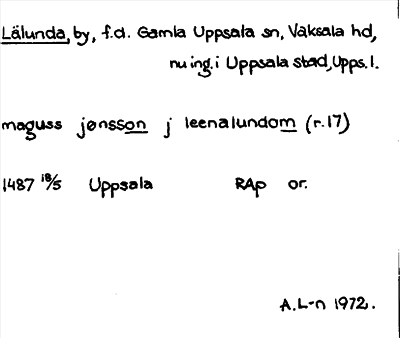 Lälunda, by, f.d. Gamla Uppsala sn, Vaksala hd,
nu ing. i Uppsala stad, Upps. l.
maguss jønsson j leenalundom (r. 17)
1487 18/5 Uppsala RAp or.
A. L-n 1972.